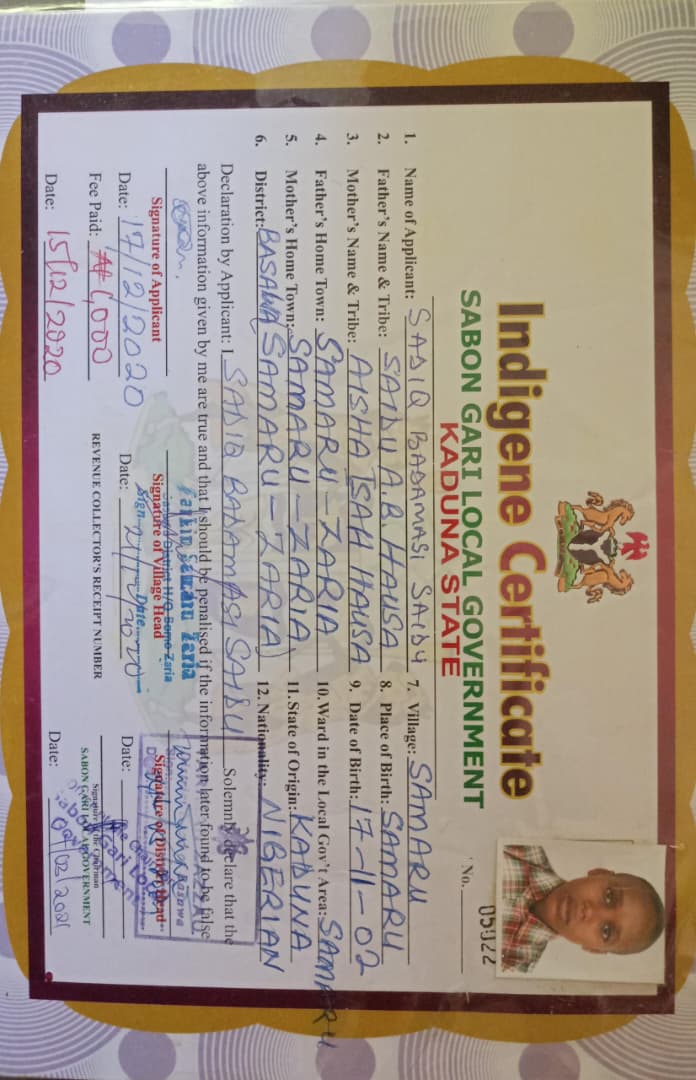 Indigene Certificate
SABON GARI LOCAL GOVERNMENT
KADUNA STATE
No. 05922
1. Name of Applicant: SADIQ BADAMASI SAIDU 7. Village: SAMARU
2. Father's Name & Tribe: SAIDU A.B. HAUSA 8. Place of Birth: SAMARU
3. Mother's Name & Tribe: AISHA ISAH HAUSA 9. Date of Birth: 17-11-02
4. Father's Home Town: SAMARU-ZARIA 10. Ward in the Local Gov't Area: SAMARU
5. Mother's Home Town: SAMARU-ZARIA 11. State of Origin: KADUNA
6. District: BASAWA (SAMARU-ZARIA) 12. Nationality: NIGERIAN
Declaration by Applicant: I, SADIQ BADAMASI SAIDU Solemnly declare that the
above information given by me are true and that I should be penalised if the information later found to be false
Signature of Applicant Signature of Village Head Signature of District Head
Date: 17/12/2020 Date: Date:
Fee Paid: ₦1,000 REVENUE COLLECTOR'S RECEIPT NUMBER
Signature of the Chairman
SABON GARI LOCAL GOVERNMENT
Date: 15/12/2020 Date: